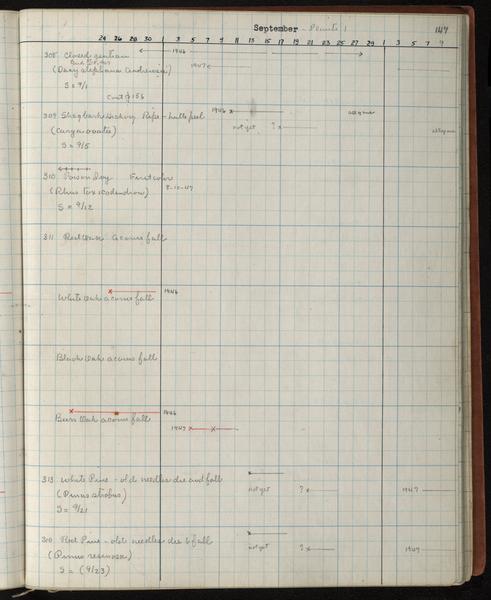 September - Plants 1 147
24 26 28 30 1 3 5 7 9 11 13 15 17 19 21 23 25 27 29 1 3 5 7 9
308 Closed gentian 1946
1947
S = 9/1
Cont p 156
309 Shagbark Hickory Ripe - hulls peel 1946
(Carya ovata) not yet ?
S = 9/5
310 Poison Ivy Fruit color
(Rhus Toxicodendron) 8-10-47
S = 9/12
311 Red Oak acorns fall
White Oak acorns fall 1946
Black Oak acorns fall
Burr Oak acorns fall 1946
1947
313 White Pine - old needles die and fall
(Pinus strobus) not yet ? 1947
S = 9/21
310 Red Pine - old needles die & fall
(Pinus resinosa) not yet ? 1947
S = (9/23)